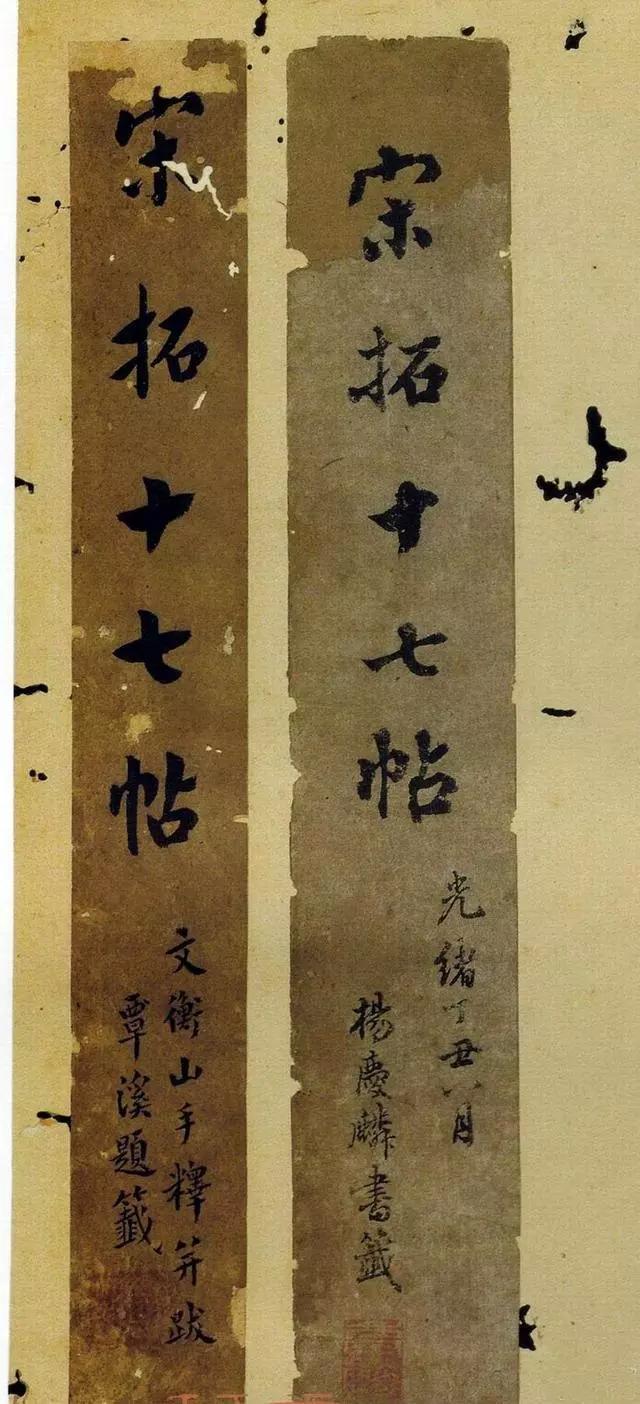 宋拓十七帖
光緒丁丑八月
楊慶麟書籤
宋拓十七帖
文衡山手釋并跋
覃溪題籤